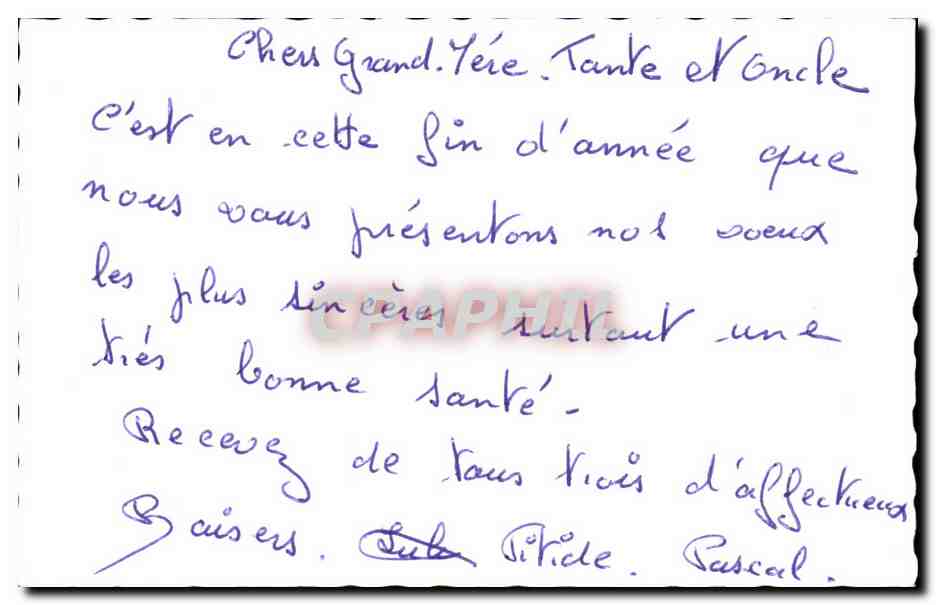 Chers Grand-Père. Tante et Oncle
C'est en cette fin d'année que
nous vous présentons nos voeux
les plus sincères surtout une
très bonne santé -
Recevez de tous trois d'affectueux
Baisers. Titide. Pascal.
CPAPHIL